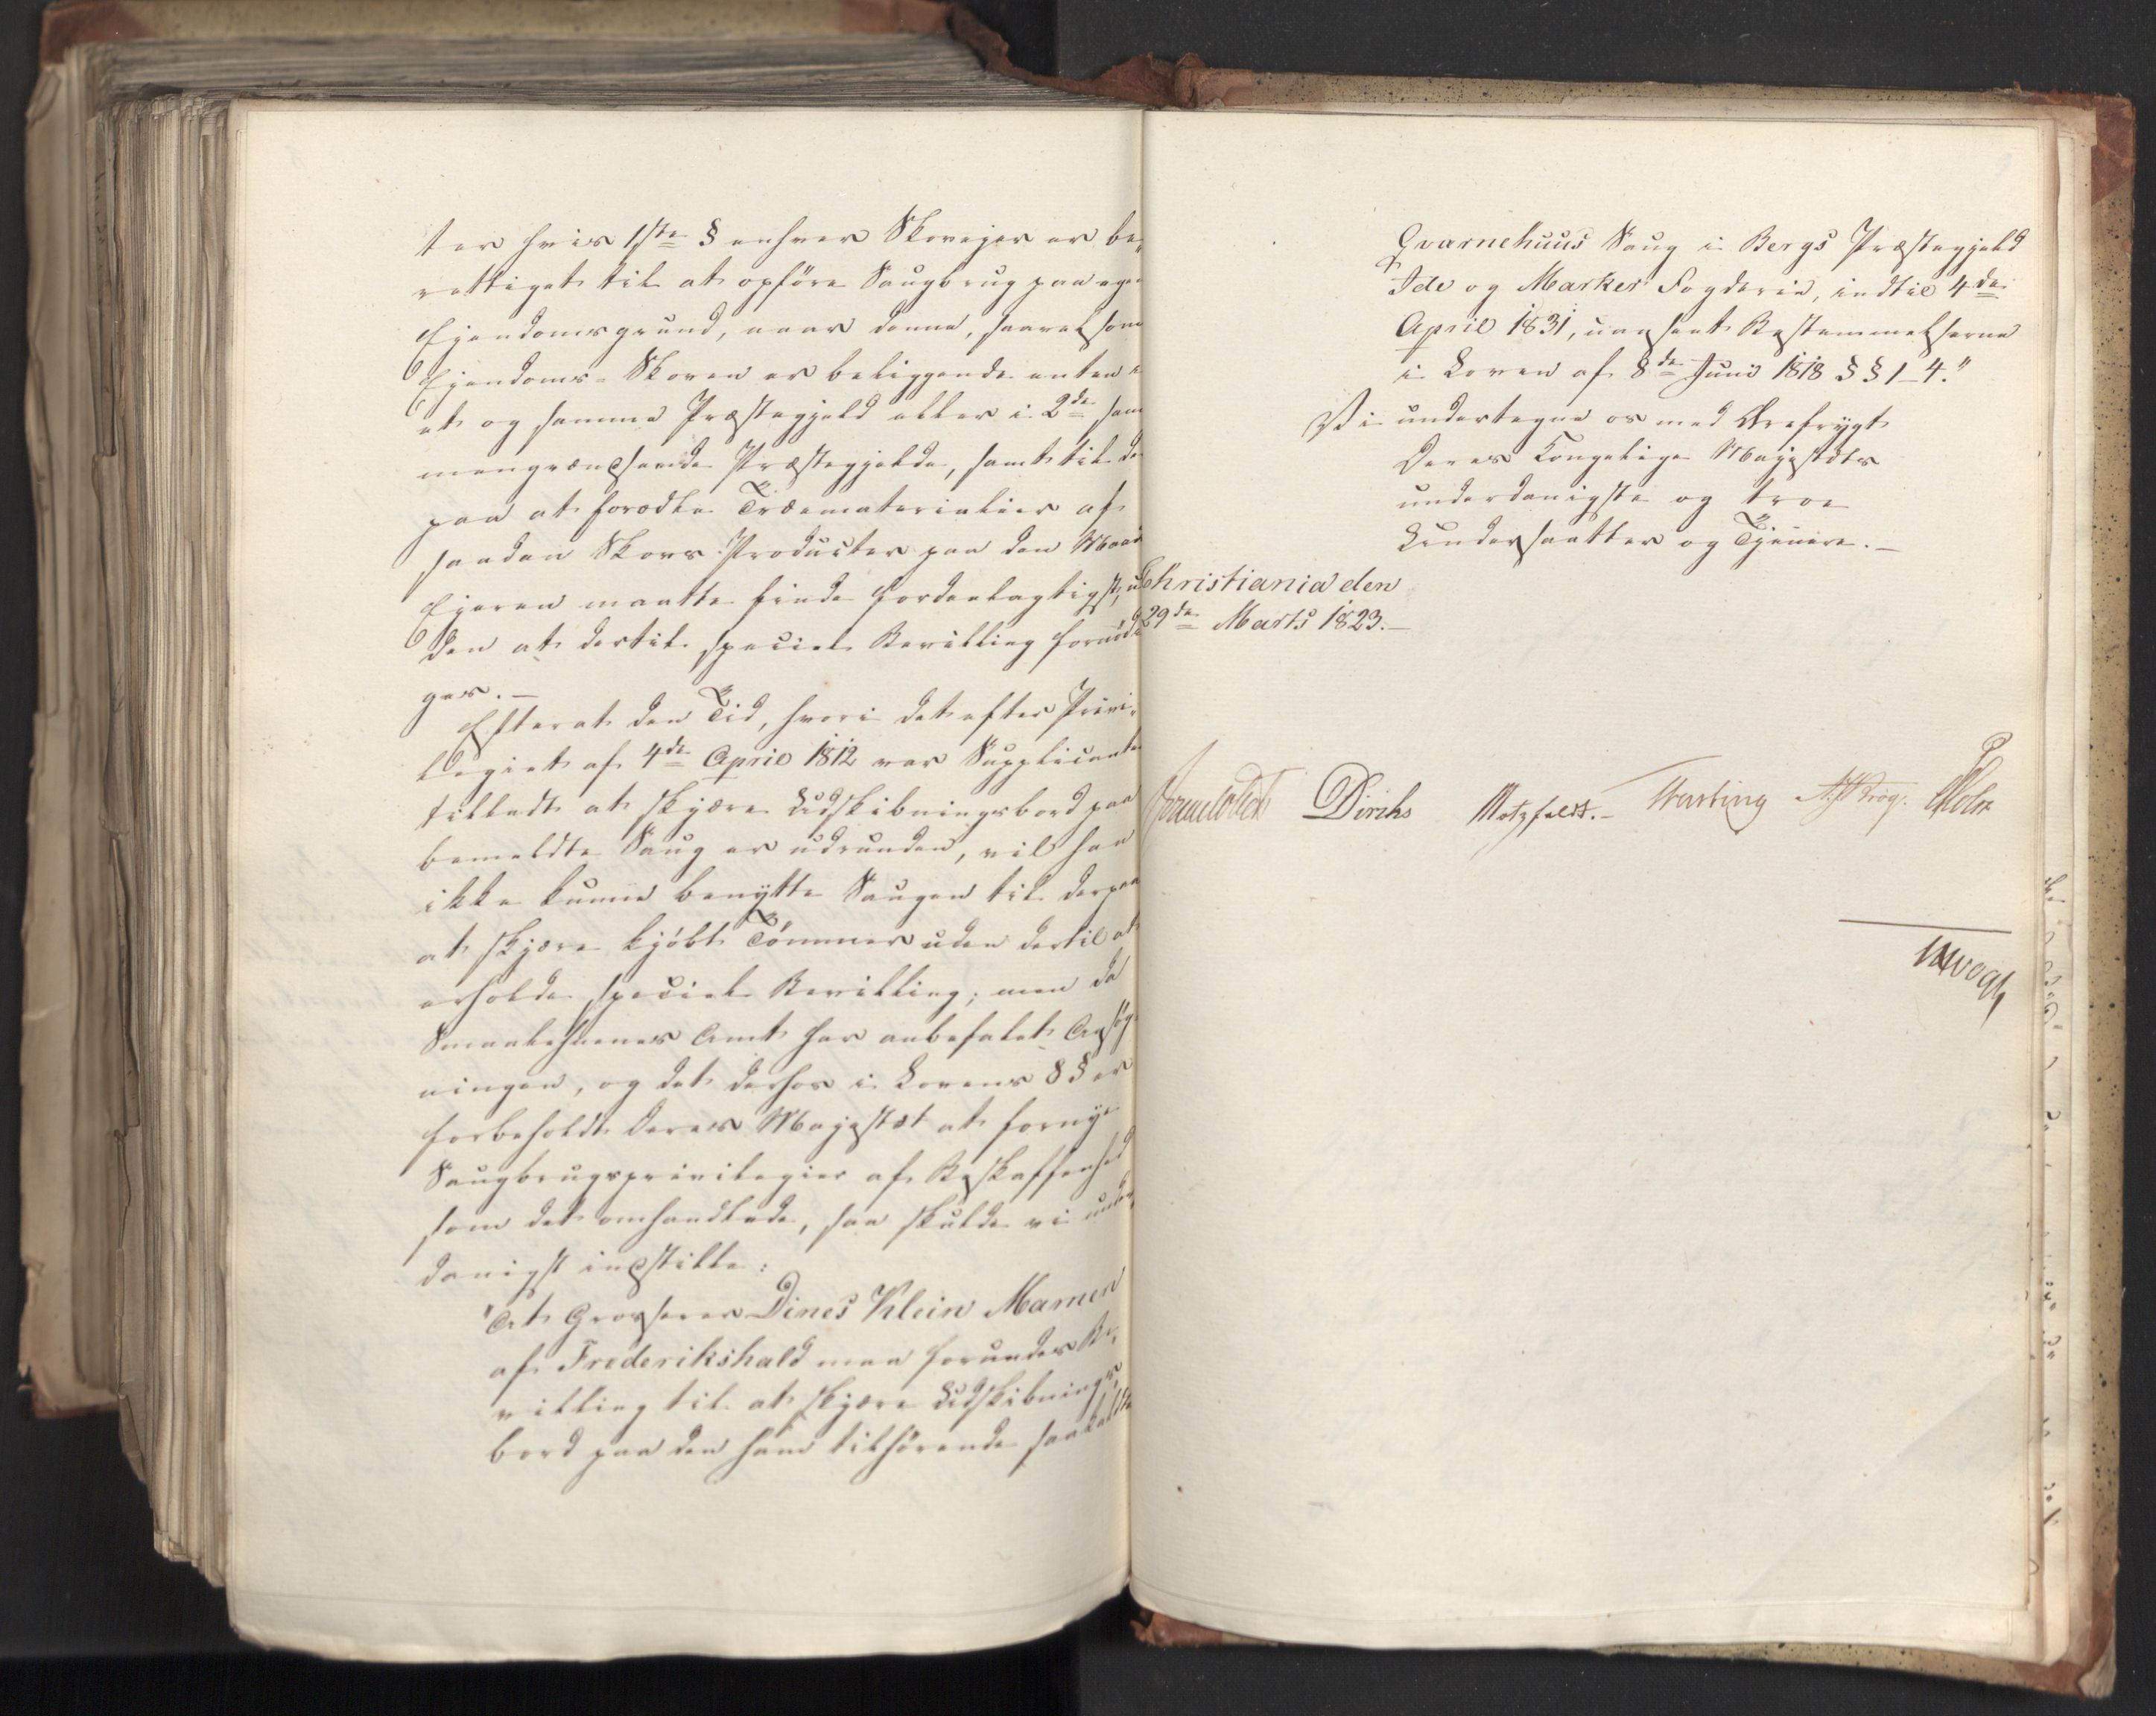 ter hvis 1ste § enhver Skovejer er be-
rettiget til at opføre Saugbrug paa egen
Ejendomsgrund, naar denne, saavelsom
Ejendoms-Skoven er beliggende enten i
et og samme Præstegjeld eller i 2de sam
mengrændsende Præstegjelde, samt til der
paa at forædle Træematerialier af
saadan Skovs Producter paa den Maade
Ejeren maatte finde fordeelagtigst, u
den at dertil speciel Bevilling fornødi
ges.-
Efterat den Tid, hvori det efter Privi-
legiet af 4de April 1812 var Supplicanten
tilladt at skjære Udskibningsbord paa
bemeldte Saug er udrunden, vil han
ikke kunne benytte Saugen til derpaa
at skjære kjøbt Tømmer uden dertil at
erholde speciel Bevilling; men da
Smaalehnenes Amt har anbefalet Ansøg
ningen, og det derhos i Lovens 8 § er
forbeholdt Deres Majestæt at forny
Saugbrugsprivilegier af Beskaffenhed
som det omhandlede, saa skulde vi under
danigst indstille:
"At Grosserer Dines Klein Mamen
af Frederikshald maa forundes Be-
villing til at skjære Udskibnings-
bord paa den ham tilhørende saakaldte
Qvarnehuus Saug i Bergs Præstegjeld
Ide og Marker Fogderie, indtil 4de
April 1831, uanseet Bestemmelserne
i Loven af 8de Juni 1818 §§ 1-4."
Vi undertegne os med Ærefrygt
Deres Kongelige Majestæts
underdanigste og troe
Undersaatter og Tjenere.-
Christiania den
29de Marts 1823.-
Diriks Motzfeldt.- Krog. Holst
Vogt